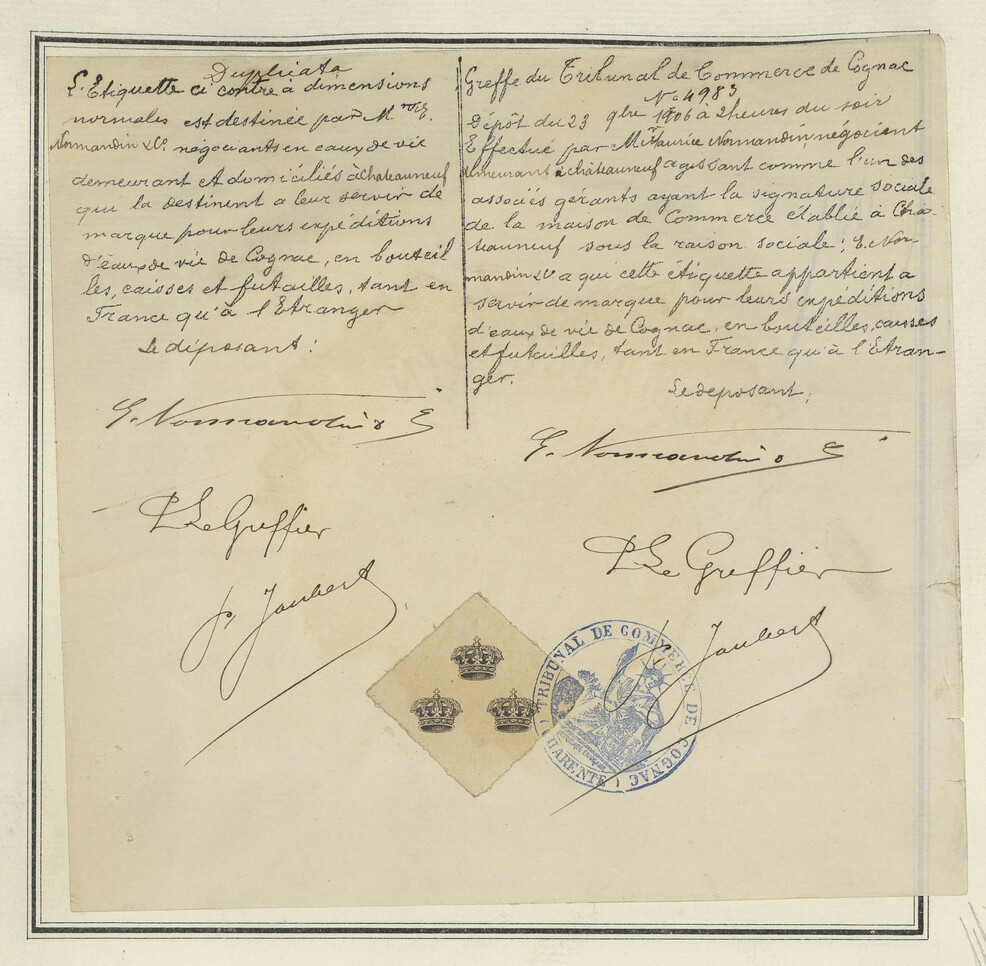 Duplicata
L'Etiquette ci contre à dimensions
normales est destinée par M
Normandin & Cie. négociants en eaux de vie
demeurant et domiciliés à Chateauneuf
qui la destinent a leur servir de
marque pour leurs expéditions
d'eaux de vie de Cognac, en bouteil
les, caisses et futailles, tant en
France qu'à l'Etranger
Le déposant :
E. Normandin &
P Le Greffier
p. Joubert
Greffe du Tribunal de Commerce de Cognac
No 4983
Dépôt du 23 9bre 1906 à 2 heures du soir
Effectué par Mr Maurice Normandin, négociant
demeurant à châteauneuf agissant comme l'un des
associés gérants ayant la signature sociale
de la maison de Commerce établie à Châ-
teauneuf sous la raison sociale : E. Nor-
mandin & Cie a qui cette étiquette appartient a
servir de marque pour leurs expéditions
d'eaux de vie de Cognac, en bouteilles, caisses
et futailles, tant en France qu'à l'Etran-
ger.
Le deposant,
E. Normandin &
P Le Greffier
p. Joubert
TRIBUNAL DE COMMERCE DE COGNAC
(CHARENTE)